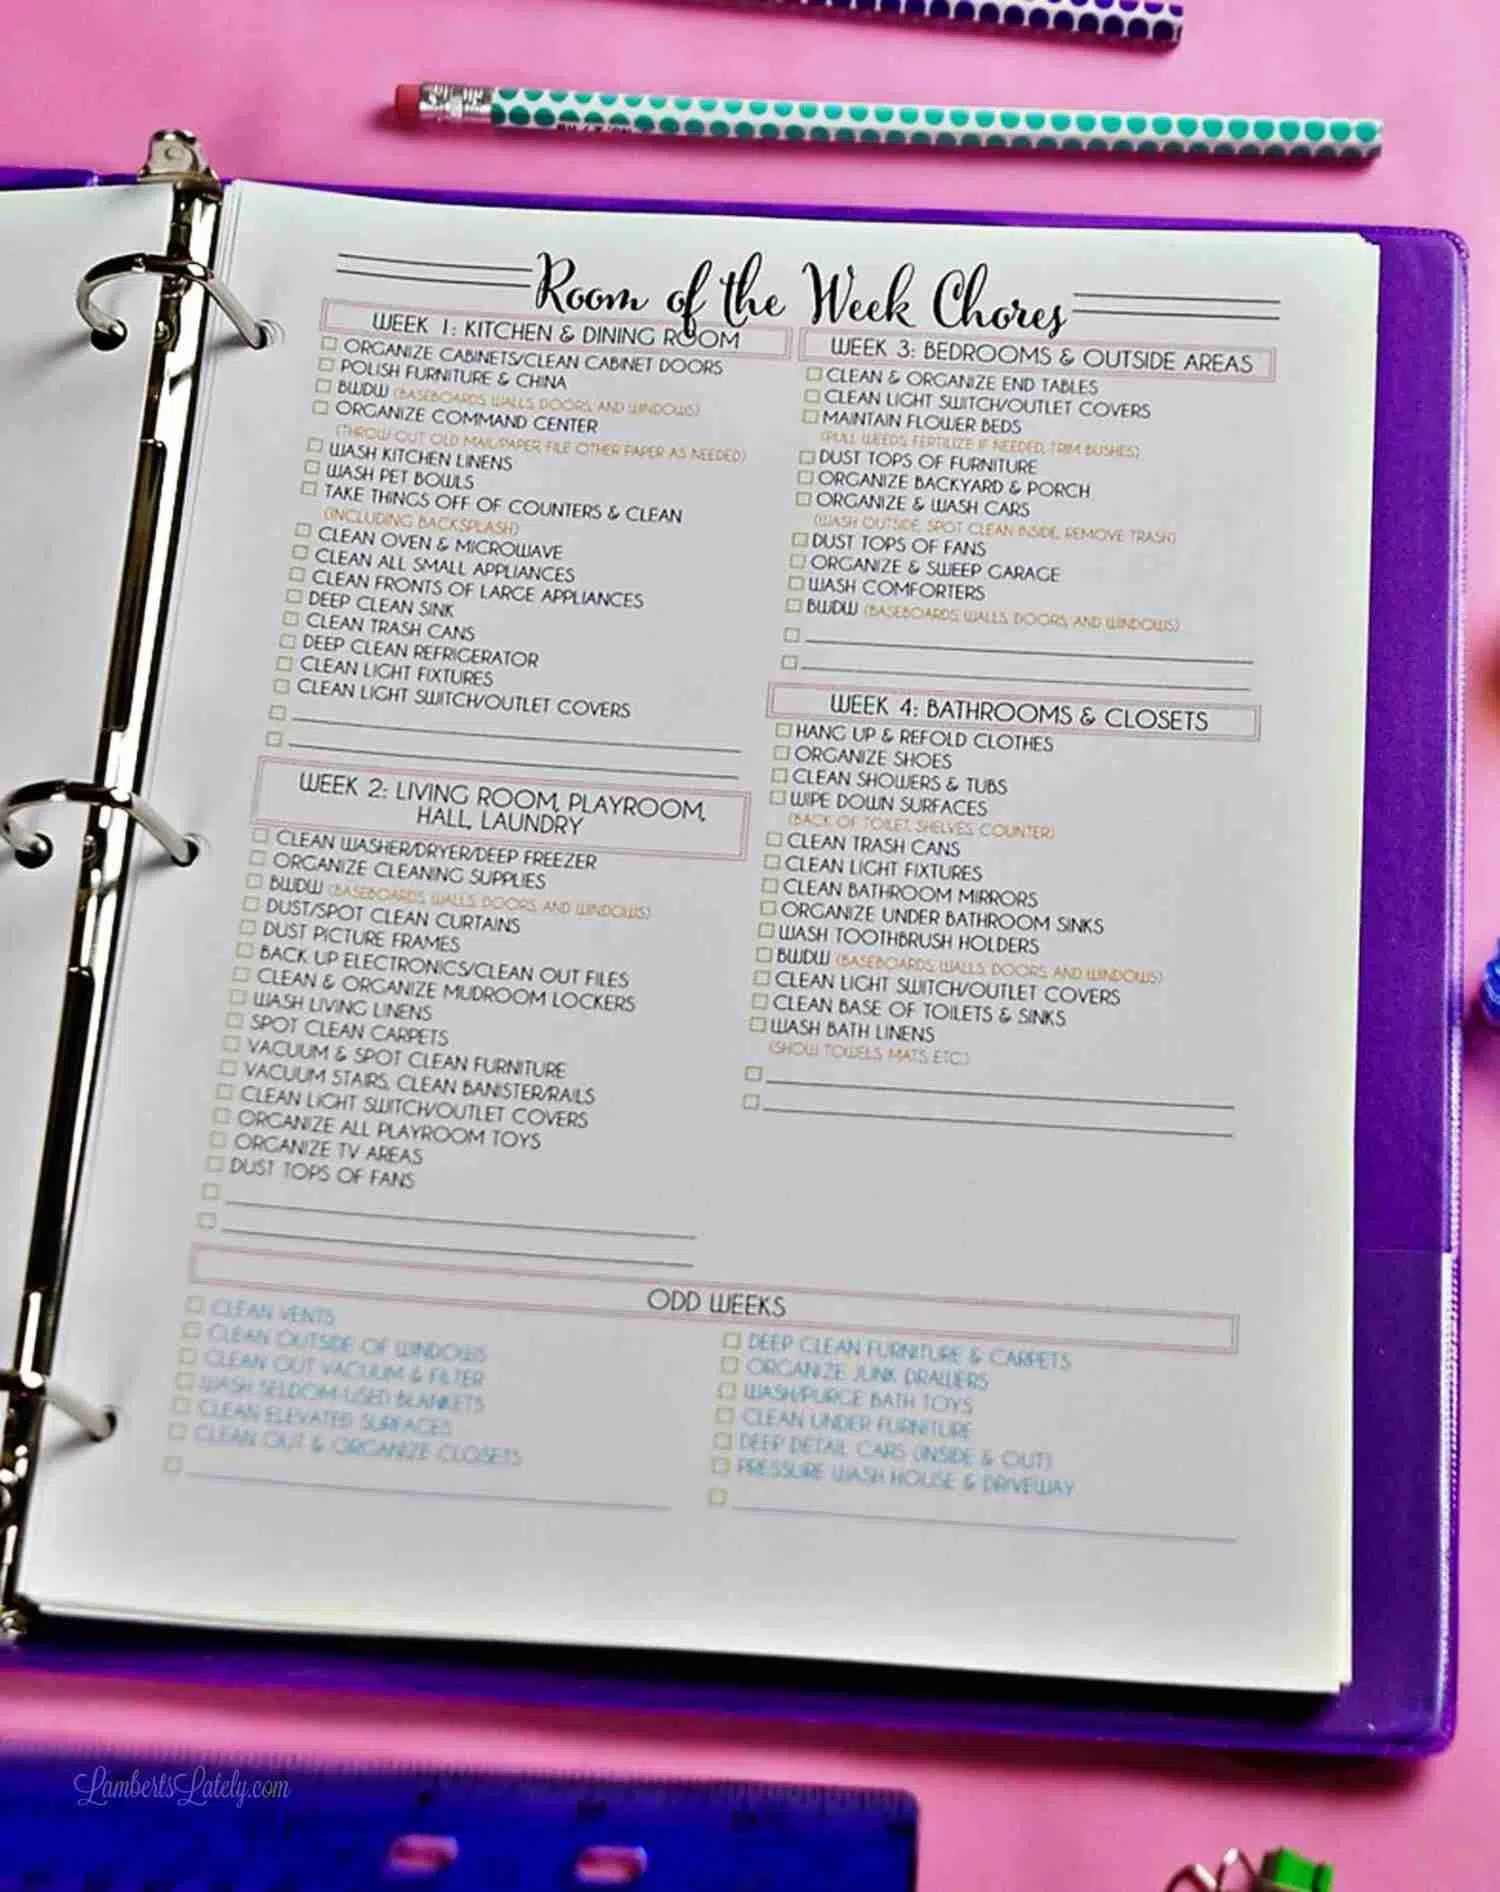 Room of the Week Chores
WEEK 1: KITCHEN & DINING ROOM
ORGANIZE CABINETS/CLEAN CABINET DOORS
POLISH FURNITURE & CHINA
BWDW (BASEBOARDS, WALLS, DOORS, AND WINDOWS)
ORGANIZE COMMAND CENTER
(THROW OUT OLD MAIL/PAPER, FILE OTHER PAPER AS NEEDED)
WASH KITCHEN LINENS
WASH PET BOWLS
TAKE THINGS OFF OF COUNTERS & CLEAN
(INCLUDING BACKSPLASH)
CLEAN OVEN & MICROWAVE
CLEAN ALL SMALL APPLIANCES
CLEAN FRONTS OF LARGE APPLIANCES
DEEP CLEAN SINK
CLEAN TRASH CANS
DEEP CLEAN REFRIGERATOR
CLEAN LIGHT FIXTURES
CLEAN LIGHT SWITCH/OUTLET COVERS
WEEK 2: LIVING ROOM, PLAYROOM,
HALL, LAUNDRY
CLEAN WASHER/DRYER/DEEP FREEZER
ORGANIZE CLEANING SUPPLIES
BWDW (BASEBOARDS, WALLS, DOORS, AND WINDOWS)
DUST/SPOT CLEAN CURTAINS
DUST PICTURE FRAMES
BACK UP ELECTRONICS/CLEAN OUT FILES
CLEAN & ORGANIZE MUDROOM LOCKERS
WASH LIVING LINENS
SPOT CLEAN CARPETS
VACUUM & SPOT CLEAN FURNITURE
VACUUM STAIRS, CLEAN BANISTER/RAILS
CLEAN LIGHT SWITCH/OUTLET COVERS
ORGANIZE ALL PLAYROOM TOYS
ORGANIZE TV AREAS
DUST TOPS OF FANS
WEEK 3: BEDROOMS & OUTSIDE AREAS
CLEAN & ORGANIZE END TABLES
CLEAN LIGHT SWITCH/OUTLET COVERS
MAINTAIN FLOWER BEDS
(PULL WEEDS, FERTILIZE IF NEEDED, TRIM BUSHES)
DUST TOPS OF FURNITURE
ORGANIZE BACKYARD & PORCH
ORGANIZE & WASH CARS
(WASH OUTSIDE, SPOT CLEAN INSIDE, REMOVE TRASH)
DUST TOPS OF FANS
ORGANIZE & SWEEP GARAGE
WASH COMFORTERS
BWDW (BASEBOARDS, WALLS, DOORS, AND WINDOWS)
WEEK 4: BATHROOMS & CLOSETS
HANG UP & REFOLD CLOTHES
ORGANIZE SHOES
CLEAN SHOWERS & TUBS
WIPE DOWN SURFACES
(BACK OF TOILET, SHELVES, COUNTER)
CLEAN TRASH CANS
CLEAN LIGHT FIXTURES
CLEAN BATHROOM MIRRORS
ORGANIZE UNDER BATHROOM SINKS
WASH TOOTHBRUSH HOLDERS
BWDW (BASEBOARDS, WALLS, DOORS, AND WINDOWS)
CLEAN LIGHT SWITCH/OUTLET COVERS
CLEAN BASE OF TOILETS & SINKS
WASH BATH LINENS
(SHOW TOWELS, MATS, ETC.)
ODD WEEKS
CLEAN VENTS
CLEAN OUTSIDE OF WINDOWS
CLEAN OUT VACUUM & FILTER
WASH SELDOM-USED BLANKETS
CLEAN ELEVATED SURFACES
CLEAN OUT & ORGANIZE CLOSETS
DEEP CLEAN FURNITURE & CARPETS
ORGANIZE JUNK DRAWERS
WASH/PURGE BATH TOYS
CLEAN UNDER FURNITURE
DEEP DETAIL CARS (INSIDE & OUT)
PRESSURE WASH HOUSE & DRIVEWAY
LambertsLately.com